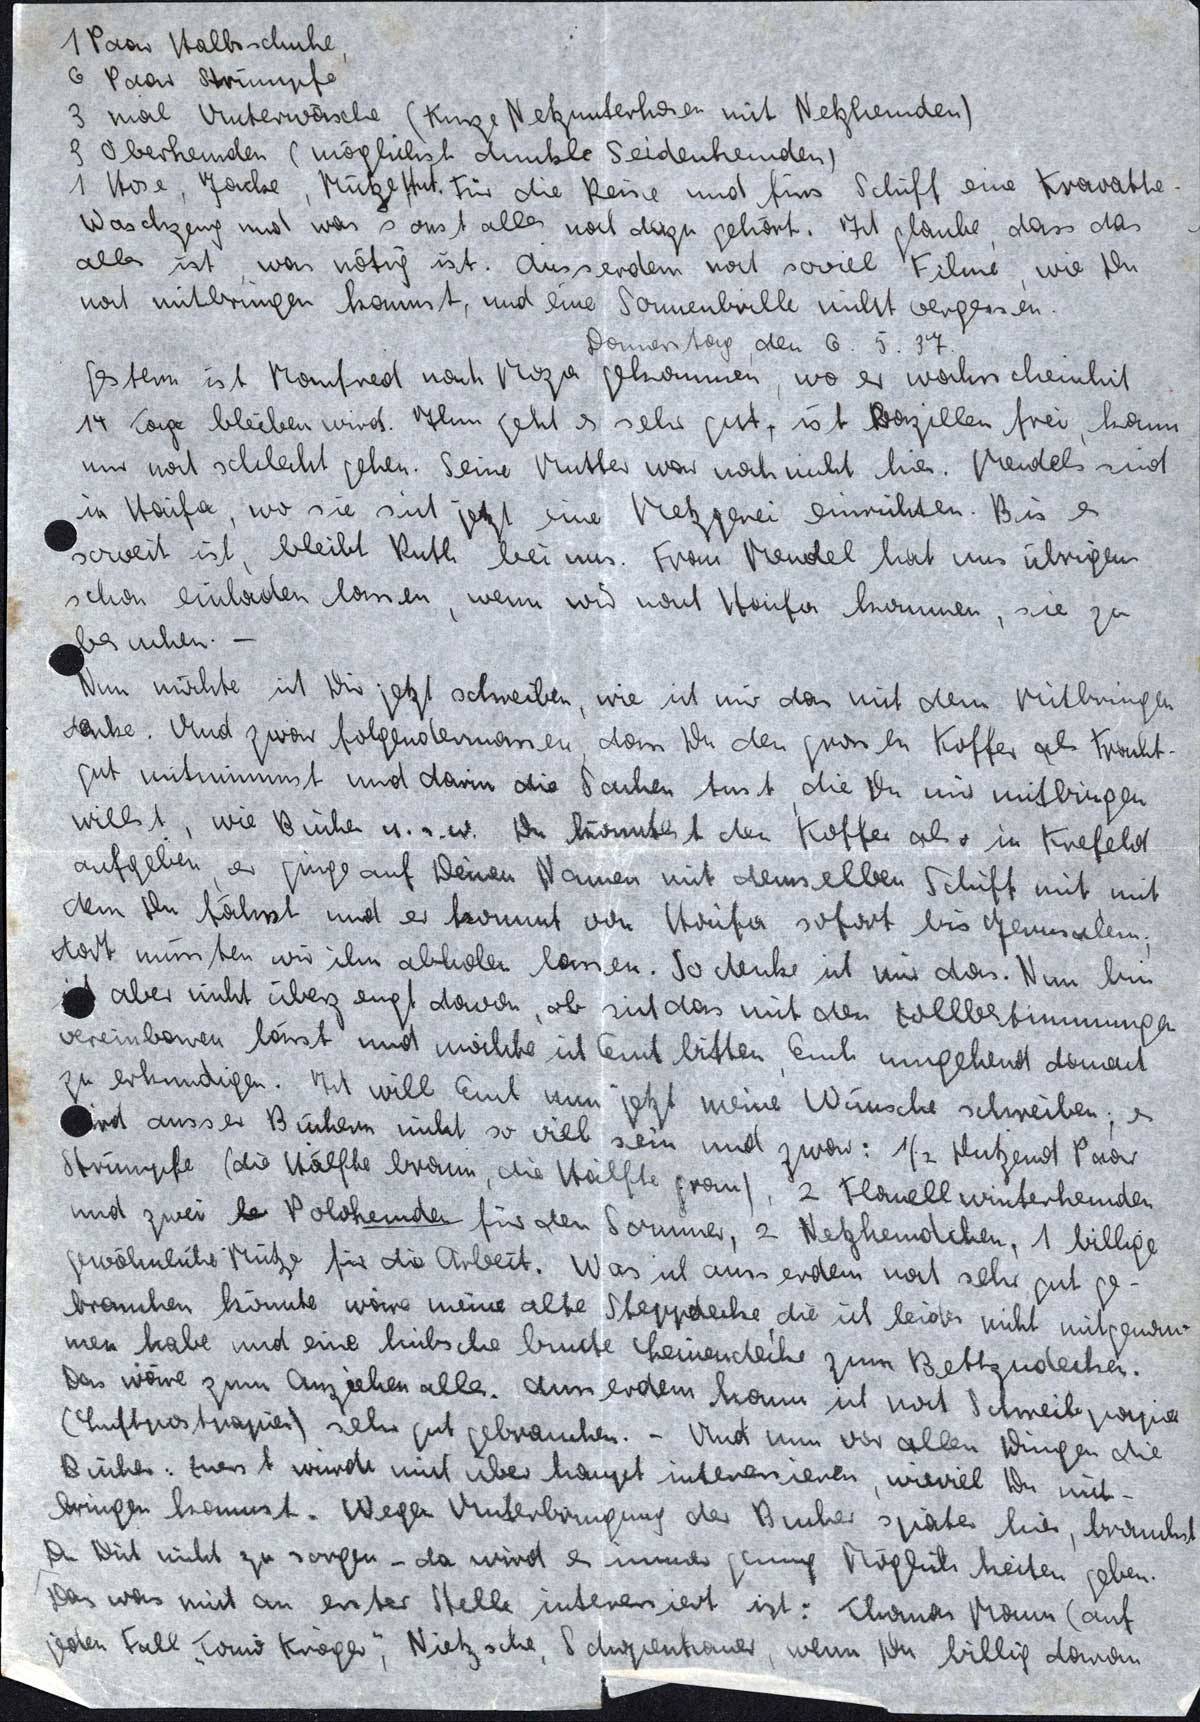 1 Paar Halbschuhe,
6 Paar Strümpfe
3 mal Unterwäsche (Kurze Netzunterhosen mit Netzhemden)
3 Oberhemden (möglichst dunkle Seidenhemden)
1 Hose, Jacke, Mütze, Hut. Für die Reise und fürs Schiff eine Kravatte.
Waschzeug und was sonst alles noch dazu gehört. Ich glaube, dass das
alles ist, was nötig ist. Ausserdem noch soviel Filme, wie Du
noch mitbringen kannst, und eine Sonnenbrille nicht vergessen.
Donnerstag, den 6. 5. 37.
Gestern ist Manfred nach Moza gekommen, wo er wahrscheinlich
14 Tage bleiben wird. Ihm geht es sehr gut, ist Bazillen frei, kann
nur noch schlecht gehen. Seine Mutter war noch nicht hier. Mendels sind
in Haifa, wo sie sich jetzt eine Metzgerei einrichten. Bis es
soweit ist, bleibt Ruth bei uns. Frau Mendel hat uns übrigens
schon einladen lassen, wenn wir nach Haifa kommen, sie zu
besuchen. —
Nun möchte ich Dir jetzt schreiben, wie ich mir das mit dem Mitbringen
denke. Und zwar folgendermassen, dass Du den grossen Koffer als Fracht-
gut mitnimmst und darin die Sachen tust, die Du mir mitbringen
willst, wie Bücher u.s.w. Du könntest den Koffer also in Krefeld
aufgeben, er ginge auf Deinen Namen mit demselben Schiff mit mit
dem Du fährst und er kommt von Haifa sofort bis Jerusalem;
dort müssten wir ihn abholen lassen. So denke ich mir das. Nun bin
ich aber nicht überzeugt davon, ob sich das mit den Zollbestimmungen
vereinbaren lässt und möchte ich Euch bitten, Euch umgehend danach
zu erkundigen. Ich will Euch nun jetzt meine Wünsche schreiben; es
wird ausser Büchern nicht so viel sein und zwar: 1/2 Dutzend Paar
Strümpfe (die Hälfte braun, die Hälfte grau), 2 Flanellwinterhemden
und zwei Polohemden für den Sommer, 2 Netzhemdchen, 1 billige
gewöhnliche Mütze für die Arbeit. Was ich ausserdem noch sehr gut ge-
brauchen könnte wäre meine alte Steppdecke, die ich leider nicht mitgenom-
men habe und eine hübsche bunte Leinendecke zum Bettzudecken.
Das wäre zum Anziehen alles. Ausserdem kann ich noch Schreibpapier
(Luftpostpapier) sehr gut gebrauchen. - Und nun vor allen Dingen die
Bücher: Zuerst würde mich überhaupt interessieren, wieviel Du mit-
bringen kannst. Wegen Unterbringung der Bücher später hier, brauchst
Du Dich nicht zu sorgen - da wird es immer genug Möglichkeiten geben.
Das was mich an erster Stelle interessiert ist: Thomas Mann (auf
jeden Fall „Tonio Kröger", Nietzsche, Schopenhauer, wenn Du billig daran